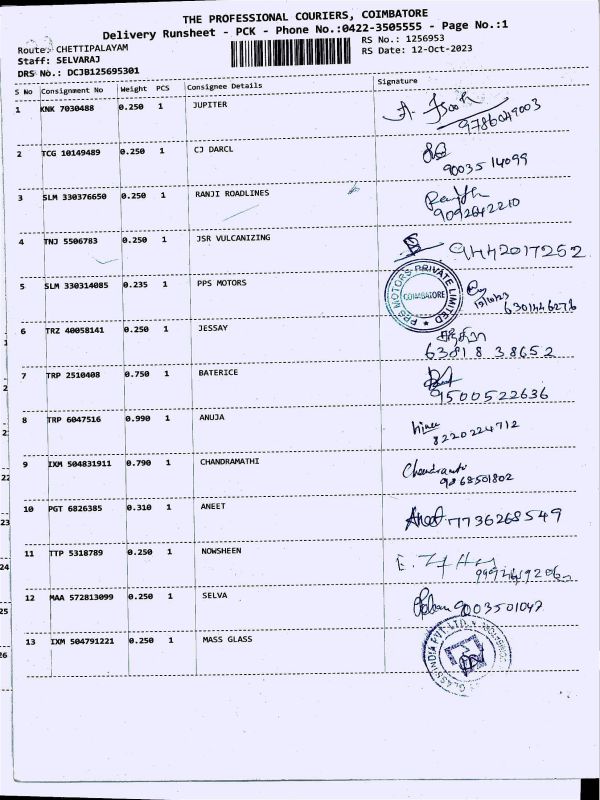 THE PROFESSIONAL COURIERS, COIMBATORE
Delivery Runsheet - PCK - Phone No.:0422-3505555 - Page No.:1
Route: CHETTIPALAYAM
RS No.: 1256953
Staff: SELVARAJ
RS Date: 12-Oct-2023
DRS No.: DCJB125695301
S No Consignment No Weight PCS Consignee Details Signature
1 KNK 7030488 0.250 1 JUPITER
9786049003
2 TCG 10149489 0.250 1 CJ DARCL
9003514099
3 SLM 330376650 0.250 1 RANJI ROADLINES
9092842210
4 TNJ 5506783 0.250 1 JSR VULCANIZING 9442017252
5 SLM 330314085 0.235 1 PPS MOTORS
PPS MOTORS PRIVATE LIMITED
COIMBATORE
12/10/23
6301446276
6 TRZ 40058141 0.250 1 JESSAY
63818 38652
7 TRP 2510408 0.750 1 BATERICE
9500522636
8 TRP 6047516 0.990 1 ANUJA
8220224712
9 IXM 504831911 0.790 1 CHANDRAMATHI
9868501802
10 PGT 6826385 0.310 1 ANEET Aneet 7736268549
11 TTP 5318789 0.250 1 NOWSHEEN
12 MAA 572813099 0.250 1 SELVA 9003501042
13 IXM 504791221 0.250 1 MASS GLASS
GLASS INDIA PVT. LTD.